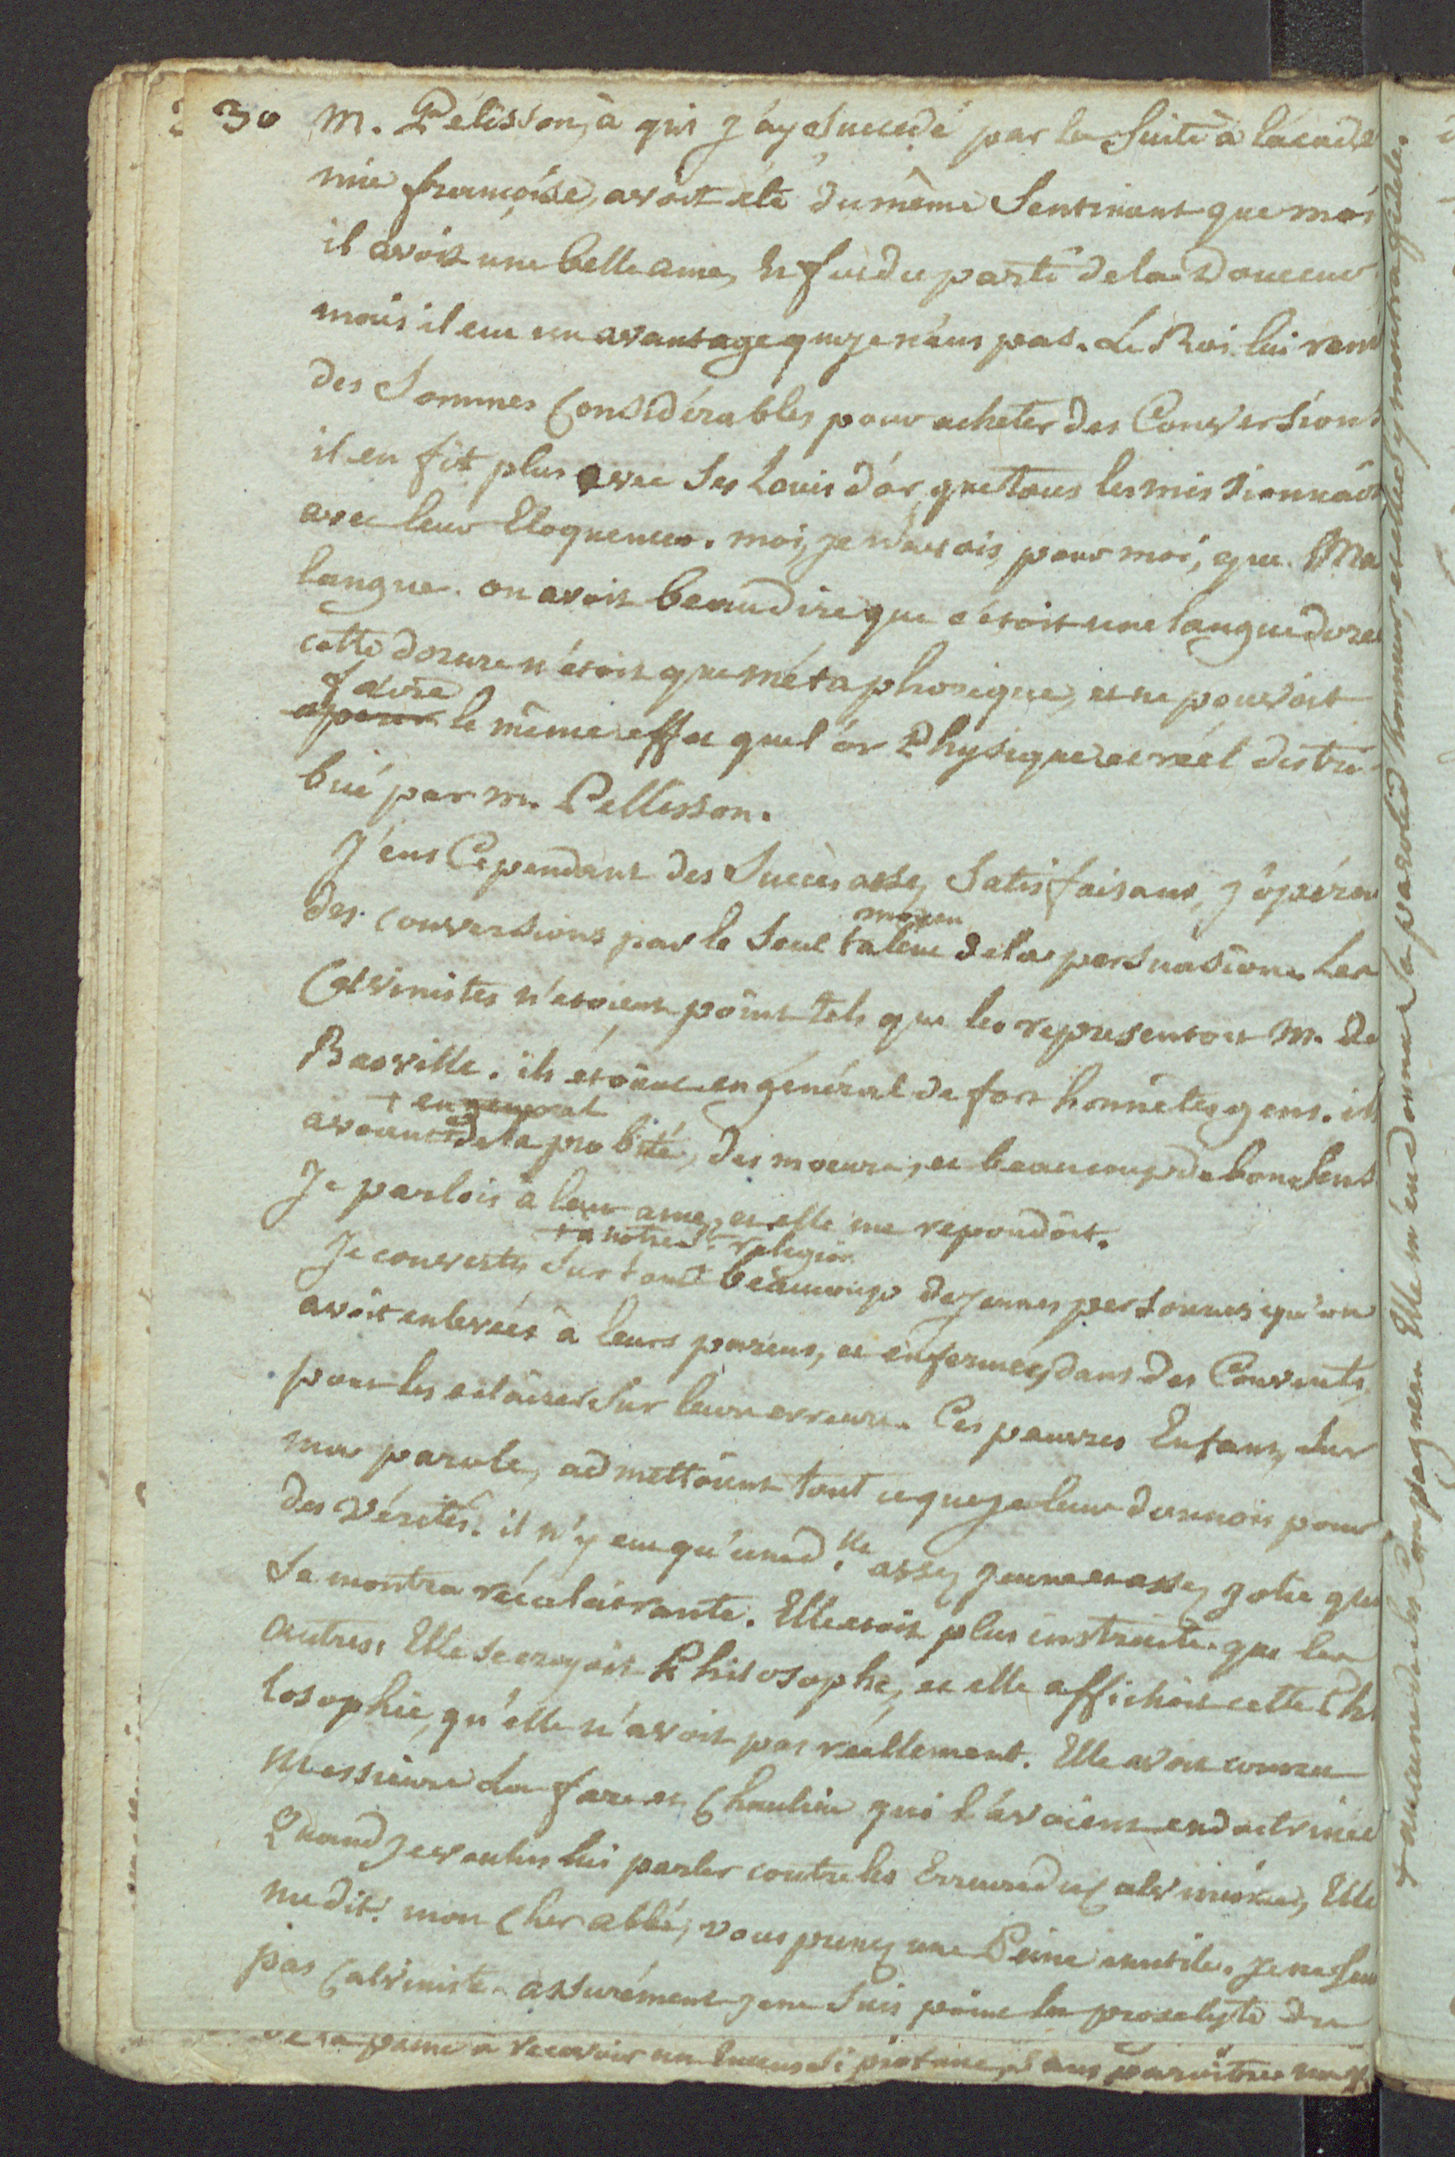 30 M. Pélisson, à qui j'ay succédé par la suite à l'acadé
mie françoise, avoit été du même sentiment que moi
il avoit une belle ame, il fut du parti de la Douceur
mais il eut un avantage que je n'eus pas. Le Roi lui remi
des sommes Considérables pour acheter des Conversions
il en fit plus avec ses Louis d'or que tous les missionnair
avec leur Eloquence. moi, je n'avois, pour moi, que Ma
langue. on avoit beau dire que c'étoit une langue dorée
cette dorure n'étoit que métaphorique, et ne pouvoit
faire
le même effet que l'or Physique et réel distri-
bué par m. Pellisson.
J'eus Cependant des Succès assez Satisfaisans, j'opérai
moyen
des conversions par le seul talent de la persuasion. Les
Calvinistes n'étoient point tels que les representoit M. de
Basville. ils étoient en général de fort honnêtes gens. ils
+ en general
avoient de la probité, des moeurs, et beaucoup de bon sens
Je parlois à leur ame, et elle me repondoit.
+ à notre Ste religion
Je convertis surtout beaucoup de jeunes personnes qu'on
avoit enlevées à leurs parens, et enfermées dans des Couvents
pour les eclairer sur leurs erreurs. Ces pauvres Enfans, sur
ma parole, admettoient tout ce que je leur donnois pour
des vérités. il n'y eut qu'une d.lle assez jeune et assez jolie qui
se montra récalcitrante. Elle etoit plus instruite que les
autres. Elle se croyoit Philosophe, et elle affichoit cette Phi
losophie, qu'elle n'avoit pas réellement. Elle avoit connu
Messieurs La fare et Chaulieu qui l'avoient endoctrinée
Quand je voulus lui parler contre les Erreurs du Calvinisme, Elle
me dit: mon Cher abbé, vous prenez une Peine inutile. je ne suis
pas Calviniste. assurément je ne suis point la proselyte du
de la peine à recevoir un Encens si profane, sans paroître
+ aucune de ses Compagnes. Elle m'en donna sa parole d'honneur, et elle s'y montra fidele.